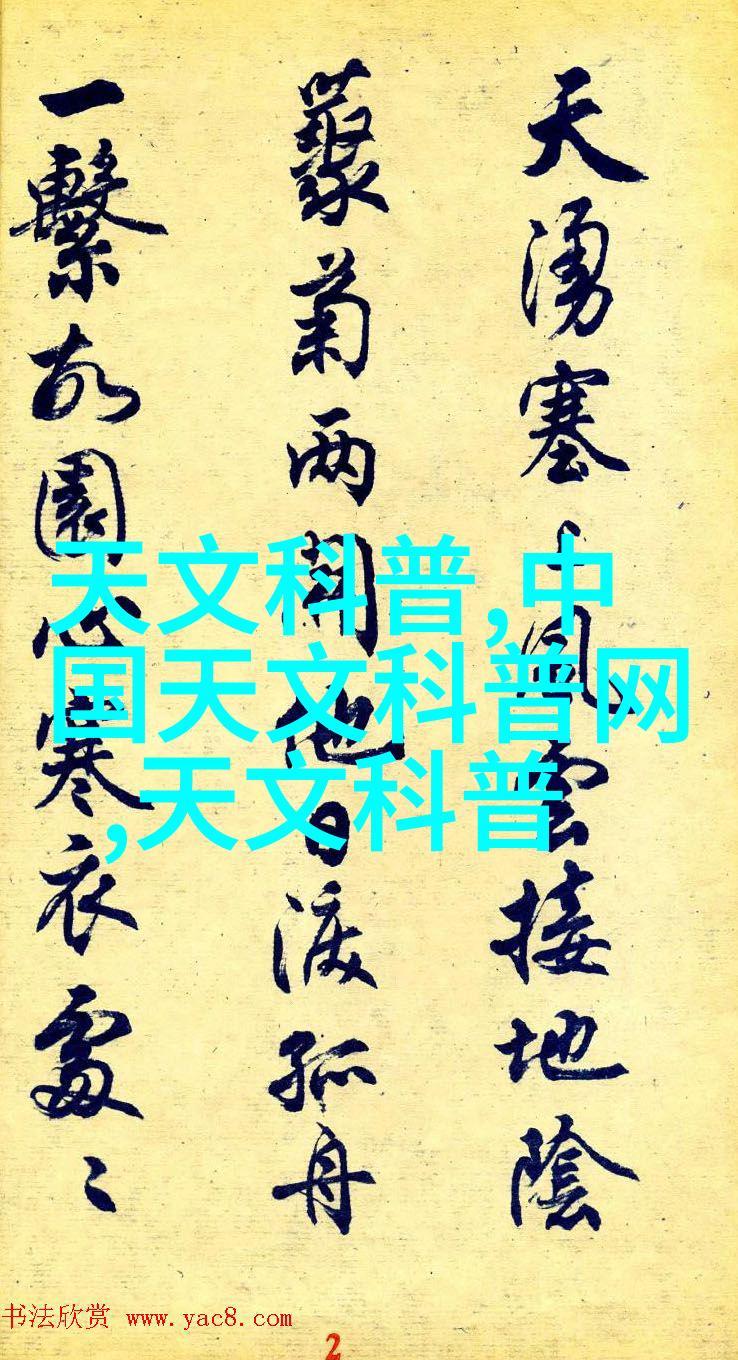 天湧塞上風雲接地陰
藂菊两開他日淚孤舟
一繫故園心寒衣處〻
天文科普,中
国天文科普网
,天文科普
书法欣赏 www.yac8.com
2